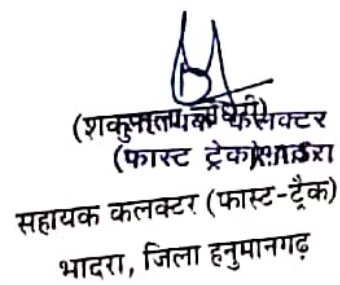 (शकुन्तला चौधरी)
(फास्ट ट्रेक)
सहायक कलक्टर (फास्ट-ट्रैक)
भादरा, जिला हनुमानगढ़